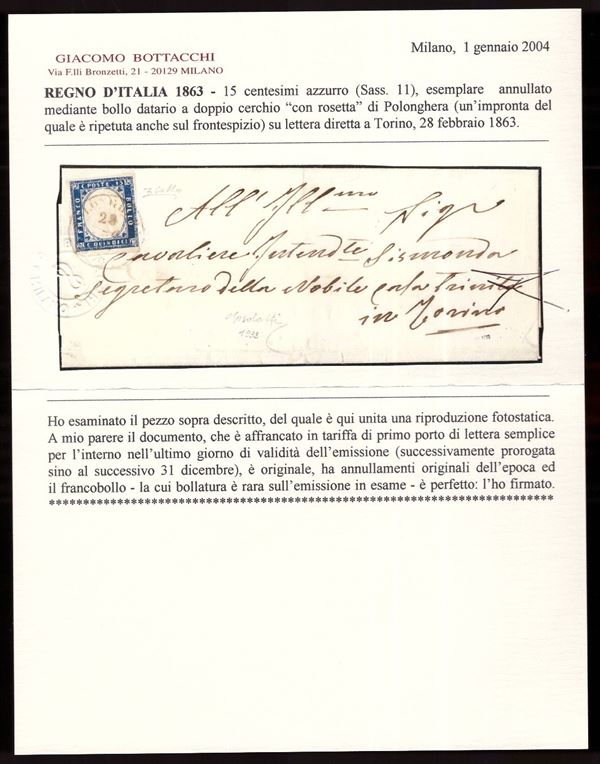 GIACOMO BOTTACCHI
Via F.lli Bronzetti, 21 - 20129 MILANO
Milano, 1 gennaio 2004
REGNO D'ITALIA 1863 - 15 centesimi azzurro (Sass. 11), esemplare annullato
mediante bollo datario a doppio cerchio “con rosetta” di Polonghera (un'impronta del
quale è ripetuta anche sul frontespizio) su lettera diretta a Torino, 28 febbraio 1863.
C. POSTE 15
FRANCO
BOLLO
C. QUINDICI
28
All' Ill.mo Sigr
Cavaliere Intendte Sismonda
Segretaro della Nobile casa Trinità
in Torino
1933
Ho esaminato il pezzo sopra descritto, del quale è qui unita una riproduzione fotostatica.
A mio parere il documento, che è affrancato in tariffa di primo porto di lettera semplice
per l'interno nell'ultimo giorno di validità dell'emissione (successivamente prorogata
sino al successivo 31 dicembre), è originale, ha annullamenti originali dell'epoca ed
il francobollo - la cui bollatura è rara sull'emissione in esame - è perfetto: l'ho firmato.